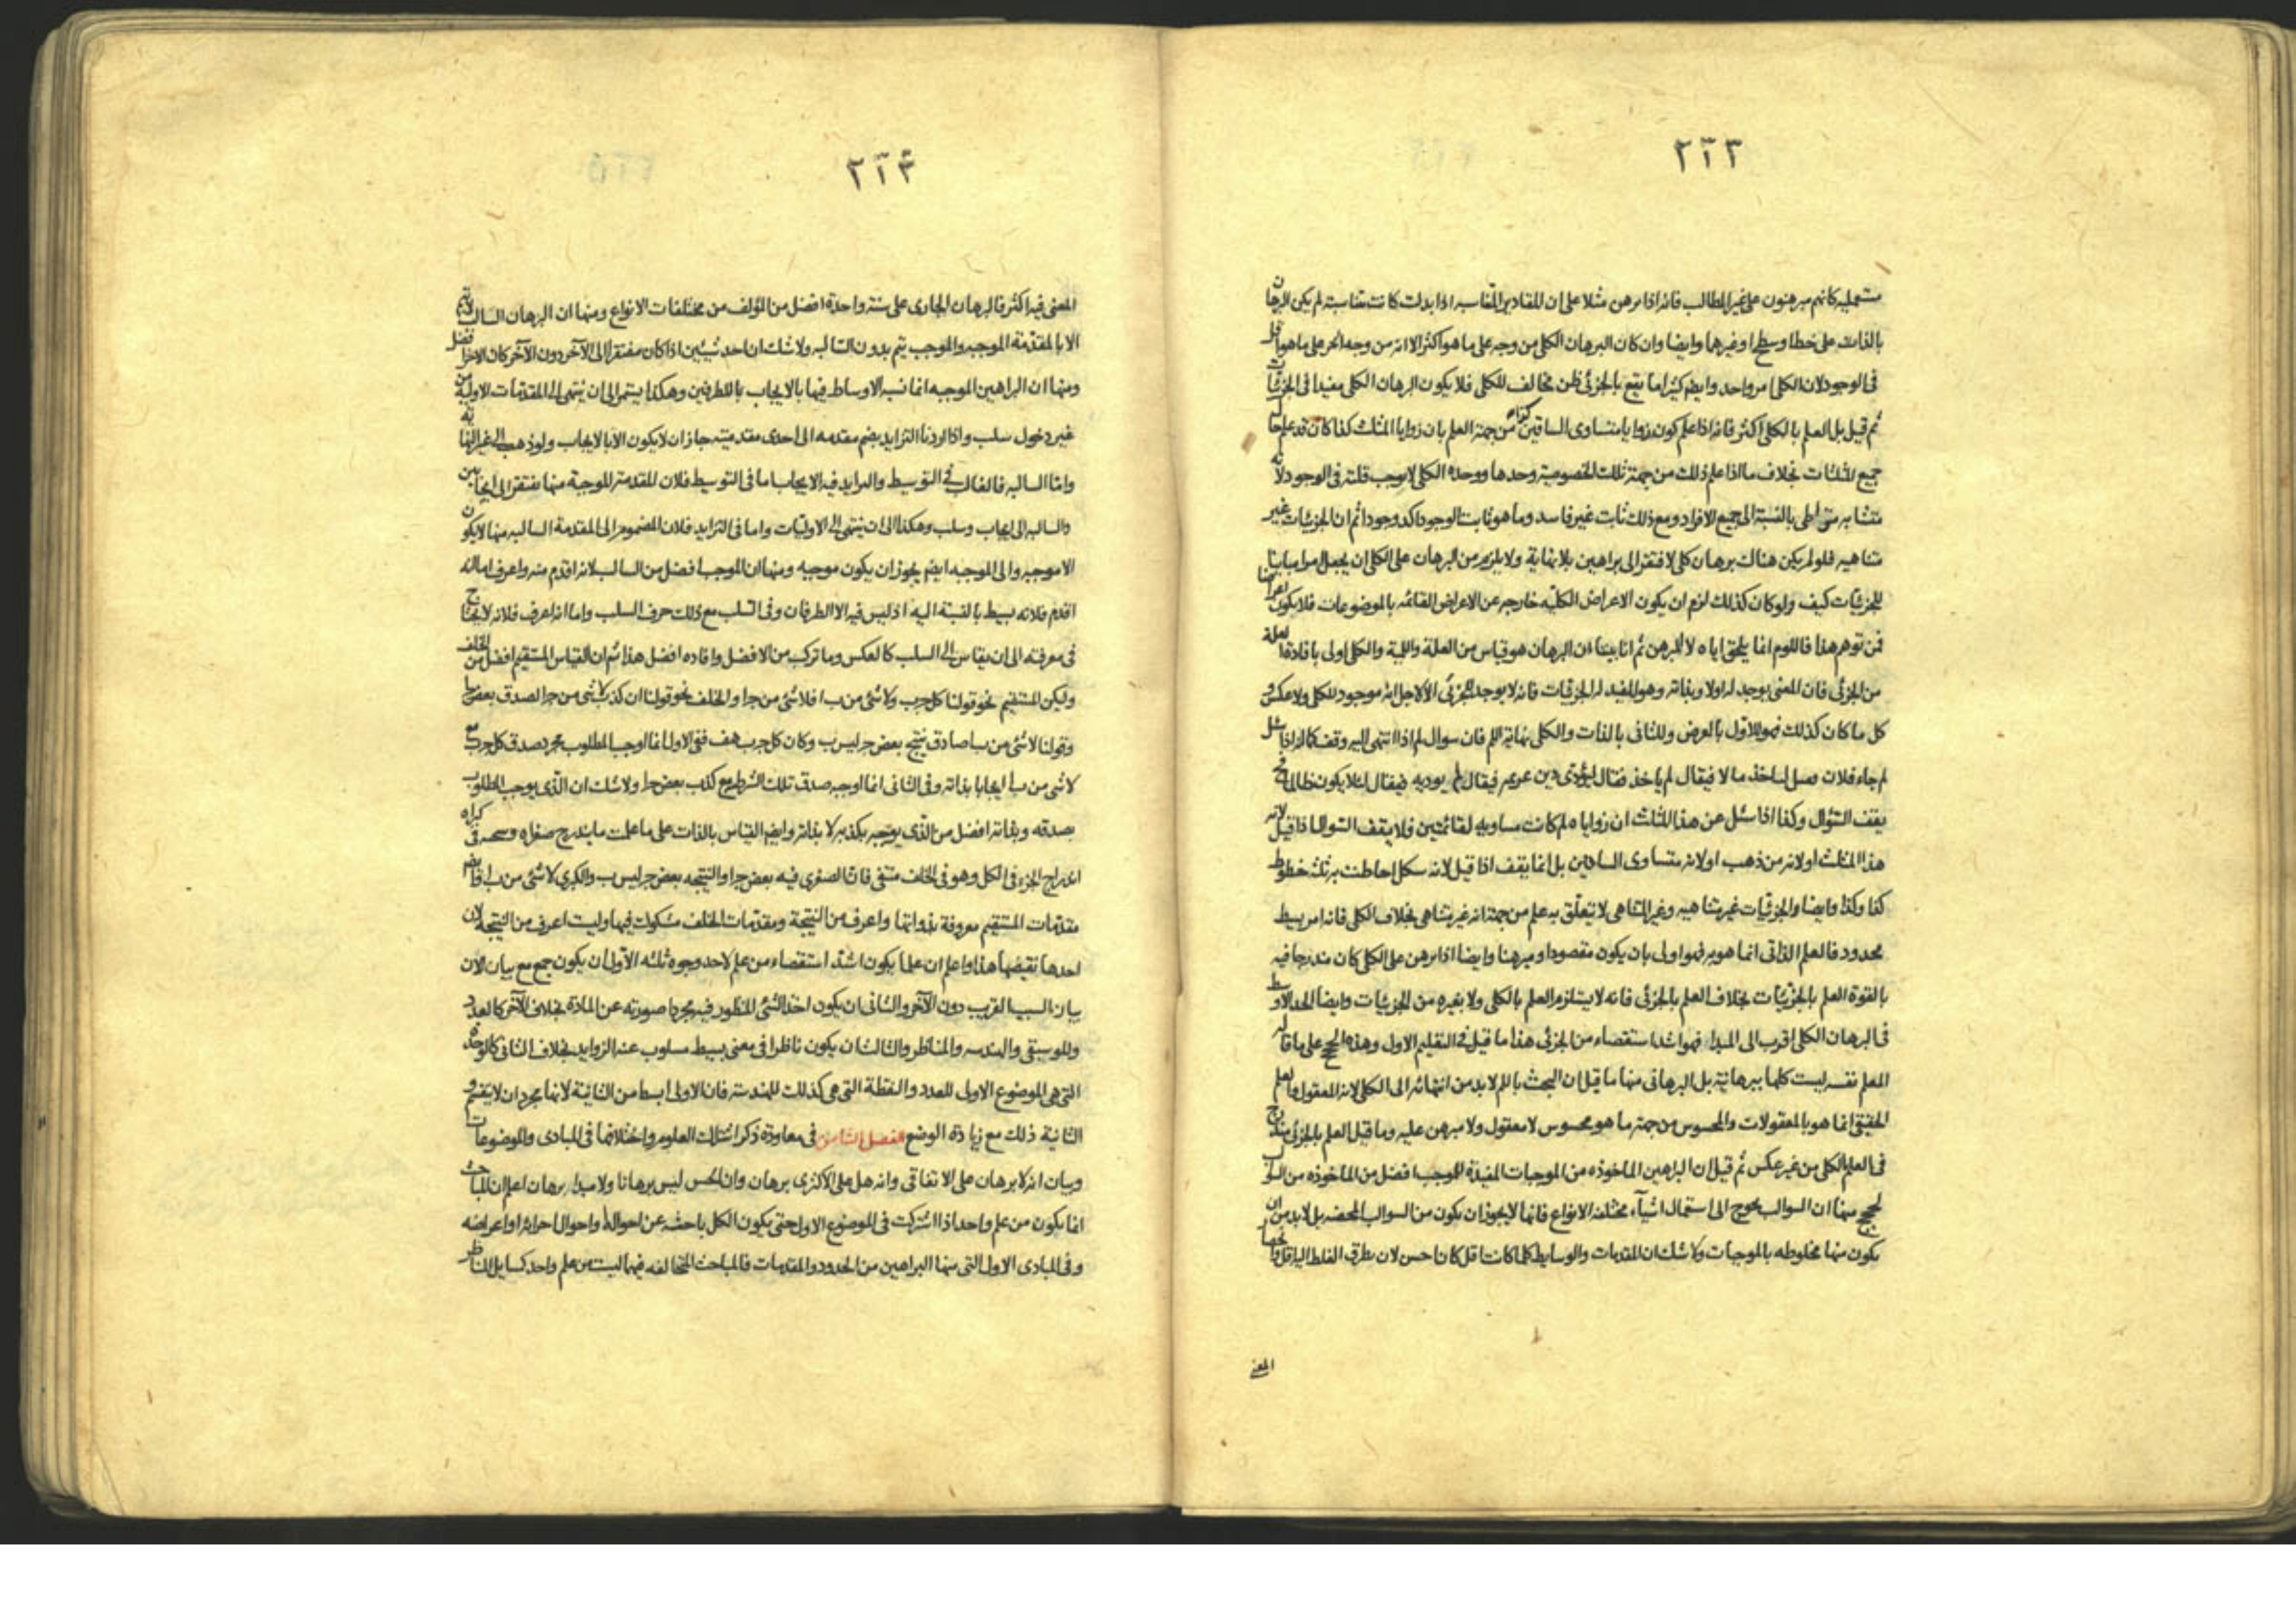 ٢٢٣
مستعمليه كانهم مبرهنون على غير المطالب فانه اذا برهن مثلا على ان المقادير المتناسبه اذا بدلت كانت متناسبة لم يكن البرهان
بالذات على خط او سطح او غيرهما وايضا وان كان البرهان الكلى من وجه على ما هو اكثر الا انه من وجه آخر على ما هو اقل
فى الوجود لان الكلى امر واحد وايضم كثيرا ما يقع بالجزئى ظن مخالف للكلى فلا يكون البرهان الكلى مفيدا فى الجزئيات
ثم قيل بل العلم بالكلى اكثر فانه اذا علم كون زوايا متساوى الساقين كذا من جهة العلم بان زوايا المثلث كذا كان قد علم حال
جميع المثلثات بخلاف ما اذا علم ذلك من جهة تلك الخصوصية وحدها ووحدة الكلى لا يوجب قلته فى الوجود لانه
متشابه متواطى بالنسبة الى جميع الافراد ومع ذلك ثابت غير فاسد وما هو ثابت الوجود اكد وجودا ثم ان الجزئيات غير
متناهيه فلو لم يكن هناك برهان كلى لافتقر الى براهين بلا نهاية ولا يلزم من البرهان على الكلى ان يجعل امرا مباينا
للجزئيات كيف ولو كان كذلك لزم ان يكون الاعراض الكليه خارجه عن الاعراض القائمه بالموضوعات فلا يكون اعراضا
فمن توهم هذا فاللوم انما يلحق اياه لا المبرهن ثم انا بينا ان البرهان هو قياس من العلة واللمية والكلى اولى بافادة العلة
من الجزئى فان المعنى يوجد له اولا وبذاته وهو المفيد له الجزئيات فانه لا يوجد للجزئى الا لاجل انه موجود للكلى ولا عكس و
كل ما كان كذلك فهو للاول بالعرض وللثانى بالذات والكلى نهاية اللم فان سوال لم اذا انتهى اليه وقف كما انه اذا سئل
لم جاء فلان فقيل لياخذ مالا فيقال لم ياخذ فقال ليؤدى دين غريمه فيقال لم يوديه فيقال لئلا يكون ظالما فح
يقف السؤال وكذا اذا سئل عن هذا المثلث ان زواياه لم كانت مساويه لقائمتين فلا يقف السوال اذا قيل لانه
هذا المثلث او لانه من ذهب او لانه متساوى الساقين بل انما يقف اذا قيل لانه شكل احاطت به ثلث خطوط
كذا وكذا وايضا والجزئيات غير متناهيه وغير المتناهى لا يتعلق به علم من جهة انه غير متناهى بخلاف الكلى فانه امر بسيط
محدود فالعلم الذاتى انما هو به فهو اولى بان يكون مقصودا ومبرهنا وايضا اذا برهن على الكلى كان مندرجا فيه
بالقوة العلم بالجزئيات بخلاف العلم بالجزئى فانه لا يستلزم العلم بالكلى ولا بغيره من الجزئيات وايضا الحد الاوسط
فى البرهان الكلى اقرب الى المبدا فهو اشد استقصاء من الجزئى هذا ما قيل فى التعليم الاول وهذه الحجج على ما قاله
المعلم نفسه ليست كلها برهانية بل البرهانى منها ما قيل ان البحث باللم لابد من انتهائه الى الكلى لانه المعقول والعلم
الحقيقى انما هو بالمعقولات والمحسوس من جهة ما هو محسوس لا معقول ولا مبرهن عليه وما قيل العلم بالجزئى مندرج
فى العلم بالكلى من غير عكس ثم قيل ان البراهين الماخوذه من الموجبات المفيدة للموجب افضل من الماخوذه من السوالب
لحجج منها ان السوالب يحوج الى استعمال اشياء مختلفه الانواع فانها لا يجوز ان يكون من السوالب المحضه بل لابد من ان
يكون منها مخلوطه بالموجبات ولا شك ان المقدمات والوسايط كلما كانت اقل كان احسن لان تطرق الغلط اليه اقل
المعنى
٢٢۴
المعنى فيه اكثر فالبرهان الجارى على سنة واحدة افضل من المؤلف من مختلفات الانواع ومنها ان البرهان السالب لا يتم
الا بالمقدمة الموجبه والموجب يتم بدون السالبه ولا شك ان احد شيئين اذا كان مفتقرا الى الآخر دون الآخر كان الاخر افضل
ومنها ان البراهين الموجبه انما نسبه الاوساط فيها بالايجاب بالطرفين وهكذا يستمر الى ان ينتهى الى المقدمات الاولية من
غير دخول سلب واذا اردنا التزايد بضم مقدمه الى احدى مقدمتيه جاز ان لا يكون الا بالايجاب ولو ذهب الى غير النهاية
واما السالبه فالغالب فى التوسيط والتزايد فيه الايجاب اما فى التوسيط فلان المقدمة الموجبة منها يفتقر الى ايجابين
والسالبه الى ايجاب وسلب وهكذا الى ان ينتهى الى الاوليات واما فى التزايد فلان المضموم الى المقدمة السالبه منها لا يكون
الا موجبه والى الموجبه ايضم يجوز ان يكون موجبه ومنها ان الموجب افضل من السالب لانه اقدم منه واعرف اما انه
اقدم فلانه بسيط بالنسبة اليه اذ ليس فيه الا الطرفان وفى السلب مع ذلك حرف السلب واما انه اعرف فلانه لا يحتاج
فى معرفته الى ان يقاس الى السلب كالعكس وما تركب من الافضل وافاده افضل هذا ثم ان القياس المستقيم افضل من الخلف
وليكن المستقيم نحو قولنا كل ج ب ولا شئ من ب ا فلا شئ من ج ا والخلف نحو قولنا ان كذب لا شئ من ج ا لصدق بعض ج ا
وقولنا لا شئ من ب ا صادق ينتج بعض ج ليس ب وكان كل ج ب هف ففى الاول انما اوجب المطلوب مجرد صدق كل ج ب
لا شئ من ب ا ايجابا بذاته وفى الثانى انما اوجبه صدق تلك الشرط مع كذب بعض ج ا ولا شك ان الذى يوجب المطلوب
بصدقه وبذاته افضل من الذى يوجبه بكذبه لا بذاته وايضم القياس بالذات على ما علمت ما يندرج صغراه تحت كبراه
اندراج الجزء فى الكل وهو فى الخلف منتفى فان الصغرى فيه بعض ج ا والنتيجه بعض ج ليس ب والكبرى لا شئ من ب ا وايضم
مقدمات المستقيم معروفة بذواتها واعرف من النتيجة ومقدمات الخلف مشكوك فيها وليست اعرف من النتيجة لان
احدها نقيضها هذا واعلم ان علما يكون اشد استقصاء من علم لاحد وجوه ثلثه الاول ان يكون جمع مع بيان الان
بيان السبب القريب دون الآخر والثانى ان يكون اخذ الشئ المنظور فيه مجردا صورته عن المادة بخلاف الآخر كالعدد
والموسيقى والهندسه والمناظر والثالث ان يكون ناظرا فى معنى بسيط مسلوب عنه الزوايد بخلاف الثانى كالوحدة
التى هى الموضوع الاولى للعدد والنقطة التى هى كذلك للهندسة فان الاولى ابسط من الثانية لانها مجرد ان لا ينقسم و
الثانية ذلك مع زيادة الوضع الفصل الثامن فى معاودة ذكر اشتراك العلوم واختلافها فى المبادى والموضوعات
وبيان انه لا برهان على الاتفاقى وانه هل على الاكثرى برهان وان الحس ليس برهانا ولا مبدا برهان اعلم ان المباحث
انما يكون من علم واحد اذا اشتركت فى الموضوع الاول حتى يكون الكل باحثه عن احواله واحوال اجزائه او اعراضه
وفى المبادى الاول التى منها البراهين من الحدود والمقدمات فالمباحث المتخالفه فيهما ليست من علم واحد كمسايل المناظر